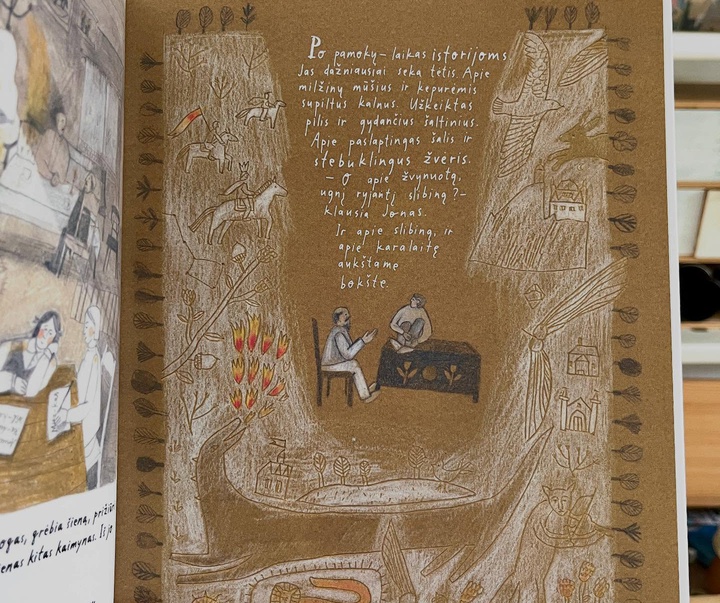 Po pamokų – laikas istorijoms.
Jas dažniausiai seka tėtis. Apie
milžinų mūšius ir kepurėmis
supiltus kalnus. Užkeiktas
pilis ir gydančius šaltinius.
Apie paslaptingas šalis ir
stebuklingus žvėris.
– O apie žvynuotą,
ugnį ryjantį slibiną? –
klausia Jonas.
Ir apie slibiną, ir
apie karalaitę
aukštame
bokšte.
ogas, grėbia šieną, prižiūr
ienas kitas kaimynas. Iš je